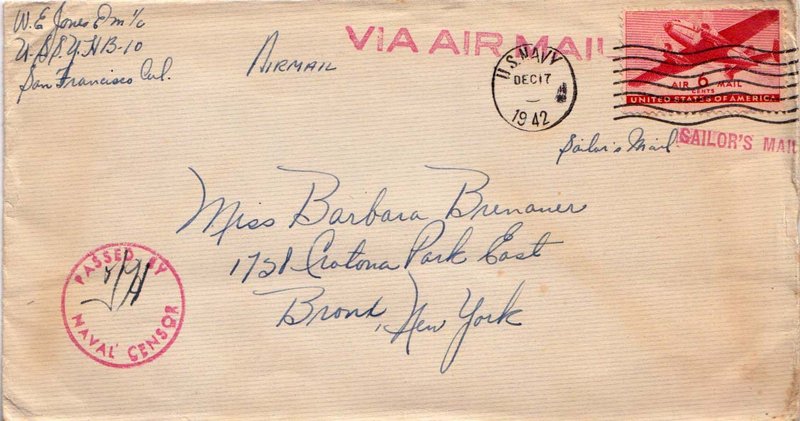 W. E. Jones EM 1/c
U.S.S. YHB-10
San Francisco Cal.
AIRMAIL
VIA AIR MAIL
U.S. NAVY
DEC 17
1942
AIR 6 MAIL
CENTS
UNITED STATES OF AMERICA
Sailor's Mail
SAILOR'S MAIL
Miss Barbara Brenauer
Crotona Park East
Bronx, New York
PASSED BY
NAVAL CENSOR